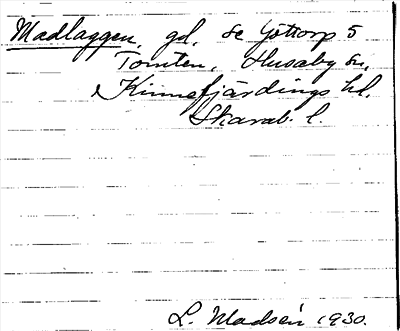 Madlaggen, gd, se Jöttorp 5
Tomten, Husaby sn,
Kinnefjärdings hd.
Skarab. l.
L. Madsén 1930.